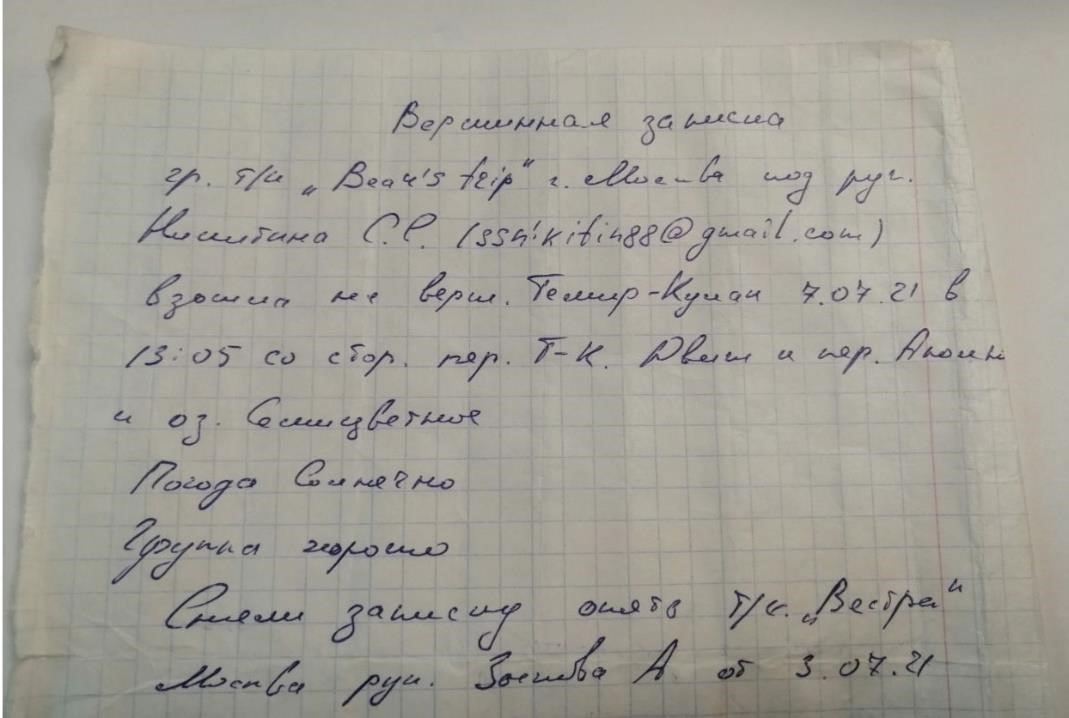 Вершинная записка
гр. т/к „Bear's trip" г. Москва под рук.
Никитина С.С. (ssnikitin88@gmail.com)
взошла на верш. Темир-Кулак 7.07.21 в
13:05 со стор. пер. Т-К. Движ и пер.
и оз. Семицветное
Погода Солнечно
Группа хорошо
Сняли записку опять т/к. „Вестра"
Москва рук. А. от 3.07.21